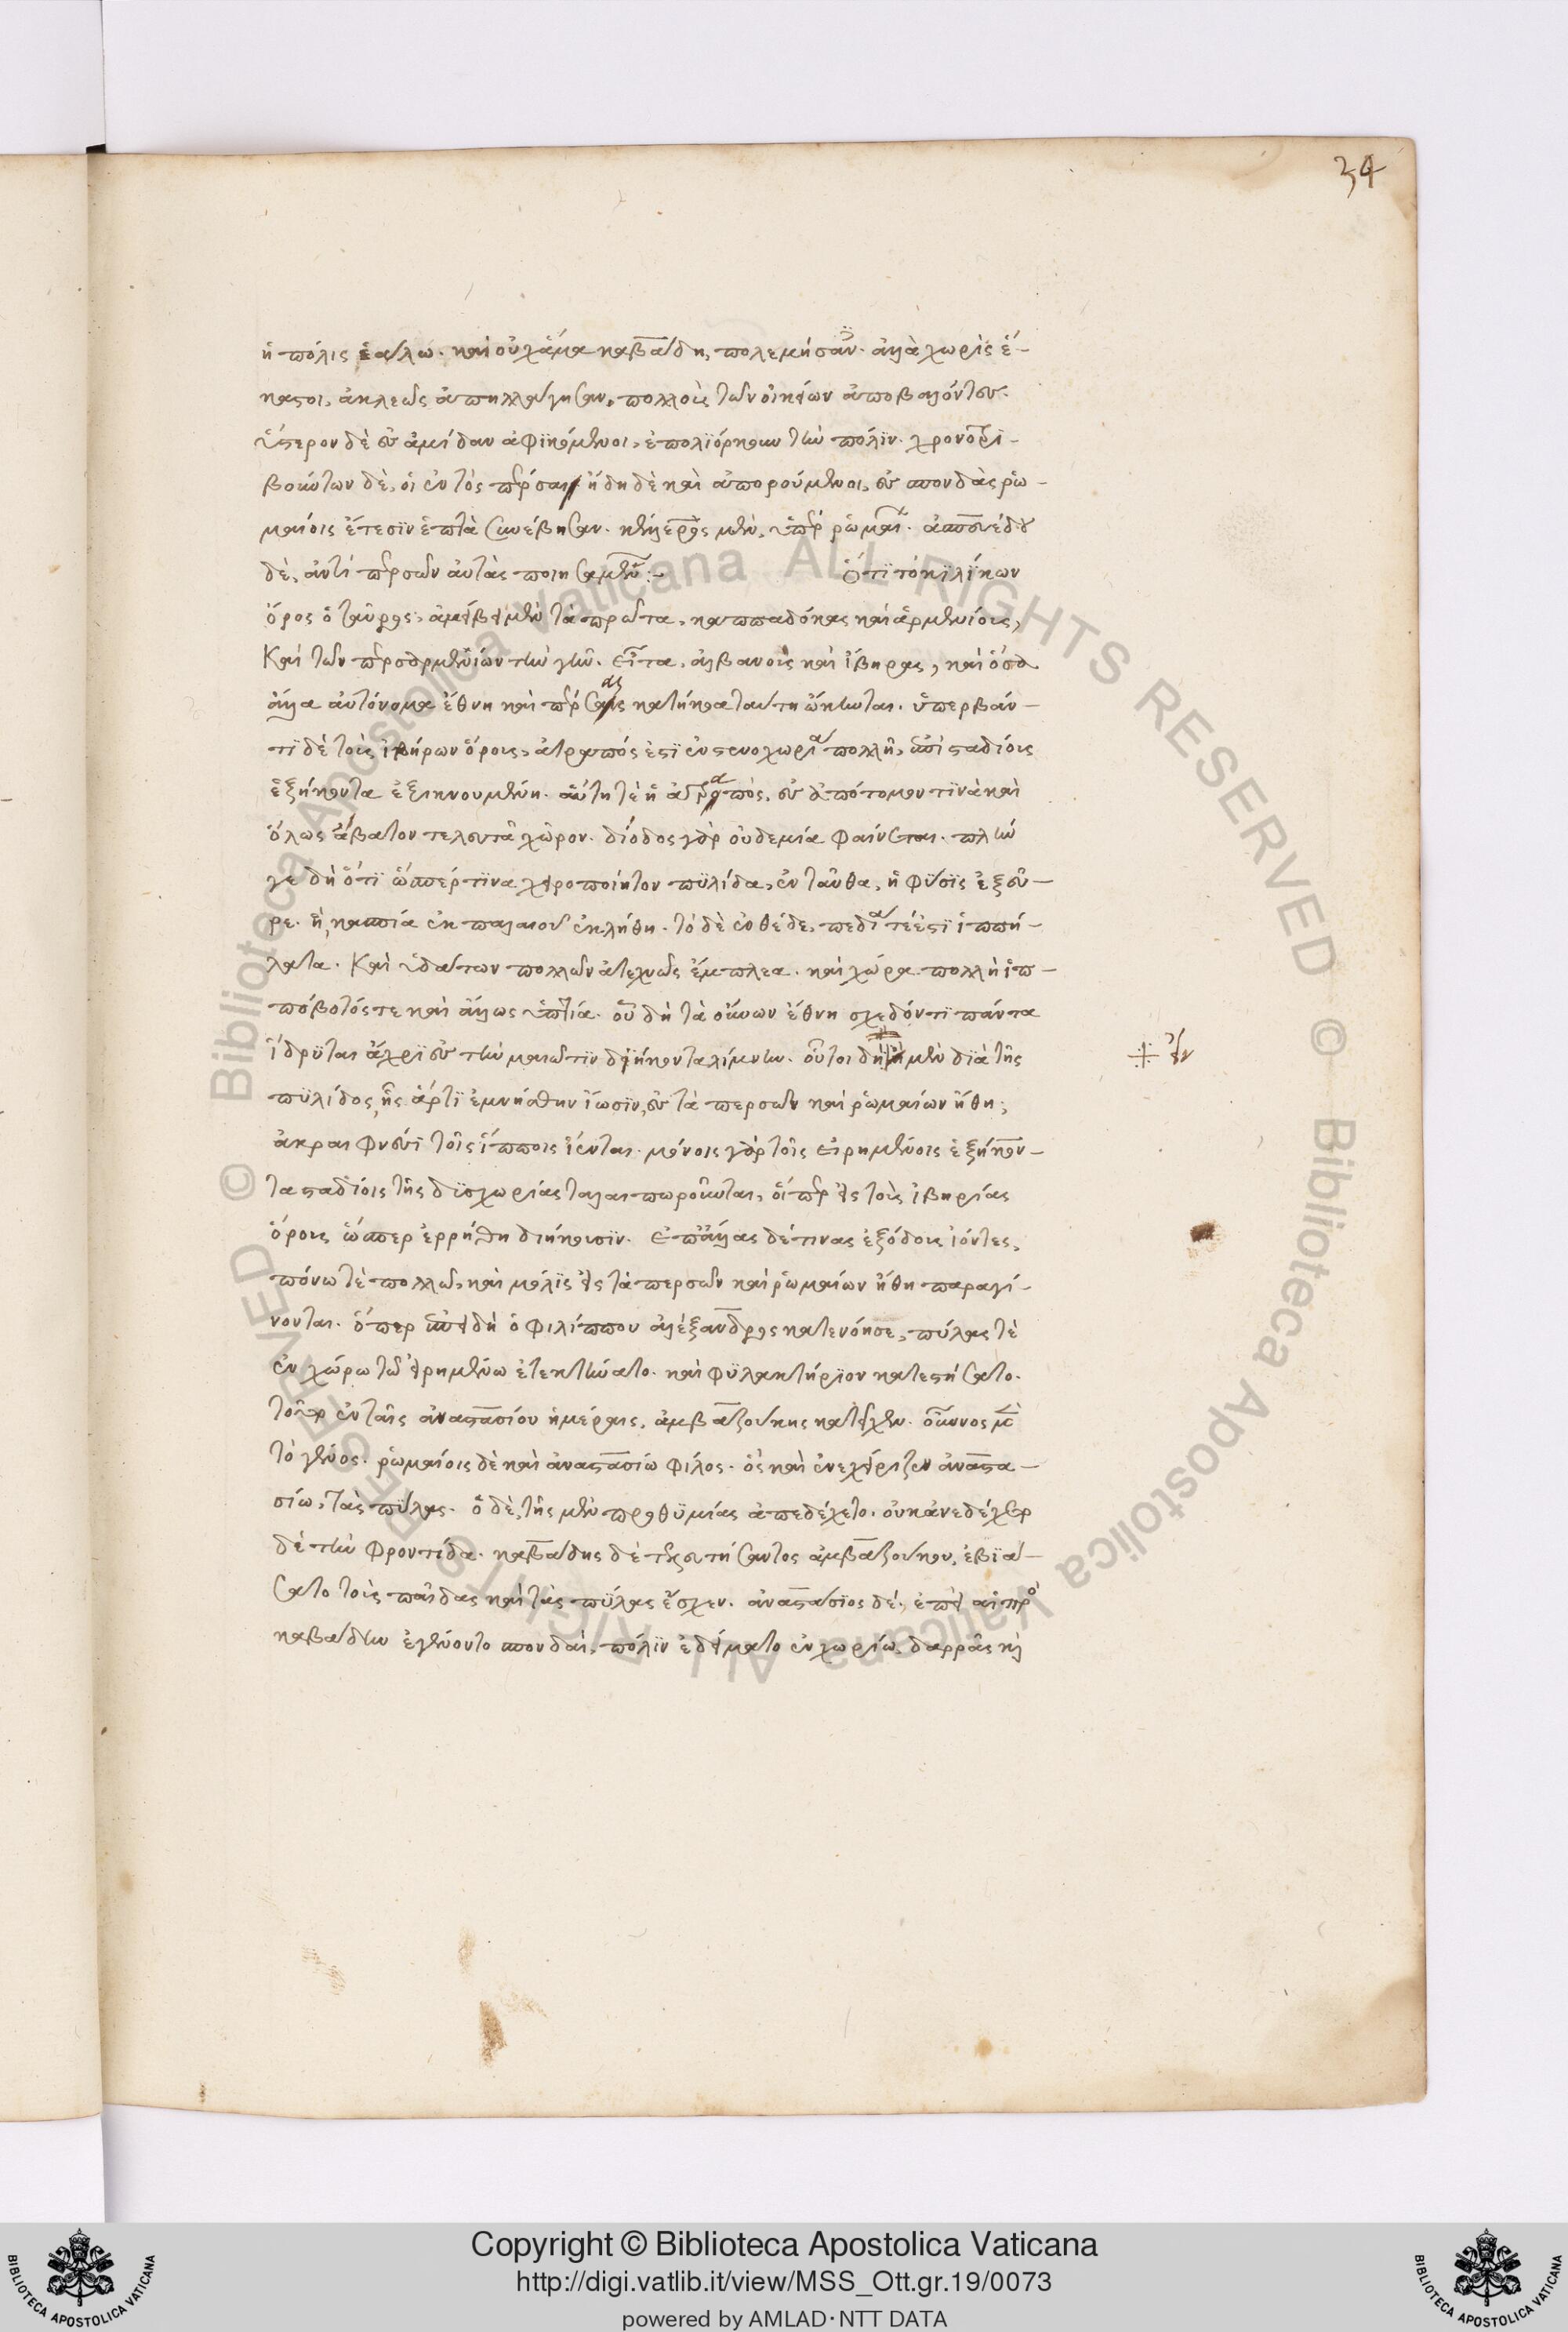 34
ἡ πόλις ἑάλω. καὶ οὐχ ἅμα καβάδη, πολεμήσαν. ἀλλὰ χωρὶς ἕ-
καστοι, ἀκλεῶς ἀπηλλάγησαν, πολλοὺς τῶν οἰκείων ἀποβαλόντες.
ὕστερον δὲ εἰς ἀμίδαν ἀφϊκόμενοι, ἐπολϊόρκουν τὴν πόλϊν. χρόνου τρι-
βομένων δὲ, οἱ ἐντὸς πέρσαι ἤδη δὲ καὶ ἀπορούμενοι, εἰς σπονδὰς ῥω-
μαίοις ἔτεσϊν ἑπτὰ συνέβησαν. κελλέριος μὲν, ὑπὲρ ῥωμαί. ἀσπεβέδου
δὲ, ἀντὶ περσῶν αὐτὰς ποιησαμένου:- Ὅτϊ τὸ κϊλϊκων
ὄρος ὁ ταῦρος, ἀμείβει μὲν τὰ πρῶτα, καππαδόκας καὶ ἀρμενίους,
καὶ τῶν περσαρμενίων τὴν γῆν. εἶτα, ἀλβανοὺς καὶ ἴβηρας, καὶ ὅσα
ἄλλα αὐτόνομα ἔθνη καὶ πέρσαις κατήκοα ταύτη ᾤκηνται. ὑπερβάν-
τϊ δὲ τοὺς ἰβήρων ὅρους, ἀτραπός ἐστϊ ἐν στενοχωρία πολλῆ, ἐπὶ σταδίους
ἑξήκοντα ἐξικνουμένη. αὕτη τὲ ἡ ἀτραπὸς, εἰς ἀπότομον τϊνὰ καὶ
ὅλως ἄβατον τελευτᾶ χῶρον. δίοδος γὰρ οὐδεμία φαίνεται. πλὴν
γε δὴ ὅτϊ ὥσπερ τϊνα χειροποίητον πϋλίδα, ἐνταῦθα, ἡ φύσϊς ἐξεῦ-
ρε. ἣ, κασπία ἐκ παλαιοῦ ἐκλήθη. τὸ δὲ ἐνθένδε, πεδία τέ ἐστϊ ἱππή-
λατα. καὶ ὑδάτων πολλῶν ἀτεχνῶς ἔμπλεα. καὶ χώρα πολλὴ ἱπ-
πόβοτός τε καὶ ἄλλως ὑπτία. οὗ δὴ τὰ οὔννων ἔθνη σχεδόν τϊ πάντα
ἵδρϋται ἄχρϊ εἰς τὴν μαιώτϊν διήκοντα λίμνην. οὗτοι δὴ μὲν διὰ τῆς
÷ ἢν
πϋλίδος, ἧς ἄρτϊ ἐμνήσθην ἴωσϊν, εἰς τὰ περσῶν καὶ ῥωμαίων ἤθη,
ἀκραιφνέσϊ τοῖς ἵπποις ἵενται. μόνοις γὰρ τοῖς εἰρημένοις ἑξήκον-
τα σταδίοις τῆς δϋσχωρίας ταλαιπωροῦνται, οἵπερ εἰς τοὺς ἰβηρίας
ὅρους ὥσπερ ἐρρήθη διήκουσϊν. ἐπ' ἄλλας δέ τινας ἐξόδους ἰόντες,
πόνω τὲ πολλῶ, καὶ μόλϊς εἰς τὰ περσῶν καὶ ῥωμαίων ἤθη παραγί-
νονται. ὅπερ ἐπειδὴ ὁ φιλίππου ἀλέξανδρος κατενόησε, πύλας τὲ
ἐν χώρω τῶ εἰρημένω ἐτεκτήνατο. καὶ φϋλακτήρϊον κατεστήσατο.
τοῦπερ ἐν ταῖς ἀναστασίου ἡμέραις, ἀμβαζούκης κατεῖχεν. οὖννος μὲν
τὸ γένος. ῥωμαίοις δὲ καὶ ἀναστασίω φίλος. ὃς καὶ ἐνεχείριζεν ἀναστα-
σίω, τὰς πϋλας. ὁ δὲ, τῆς μὲν προθϋμίας ἀπεδέχετο. οὐκ ἀνεδέχετο
δὲ τὴν φροντίδα. καβάδης δὲ τελευτήσαντος ἀμβαζούκου, ἐβϊά-
σατο τοὺς παῖδας καὶ τὰς πύλας ἔσχεν. ἀναστάσϊος δέ, ἐπεὶ αἱ πρὸς
καβάδην ἐγένοντο σπονδαὶ, πόλϊν ἐδείματο ἐν χωρίω, δαρρᾶς καὶ
Copyright © Biblioteca Apostolica Vaticana
http://digi.vatlib.it/view/MSS_Ott.gr.19/0073
powered by AMLAD·NTT DATA